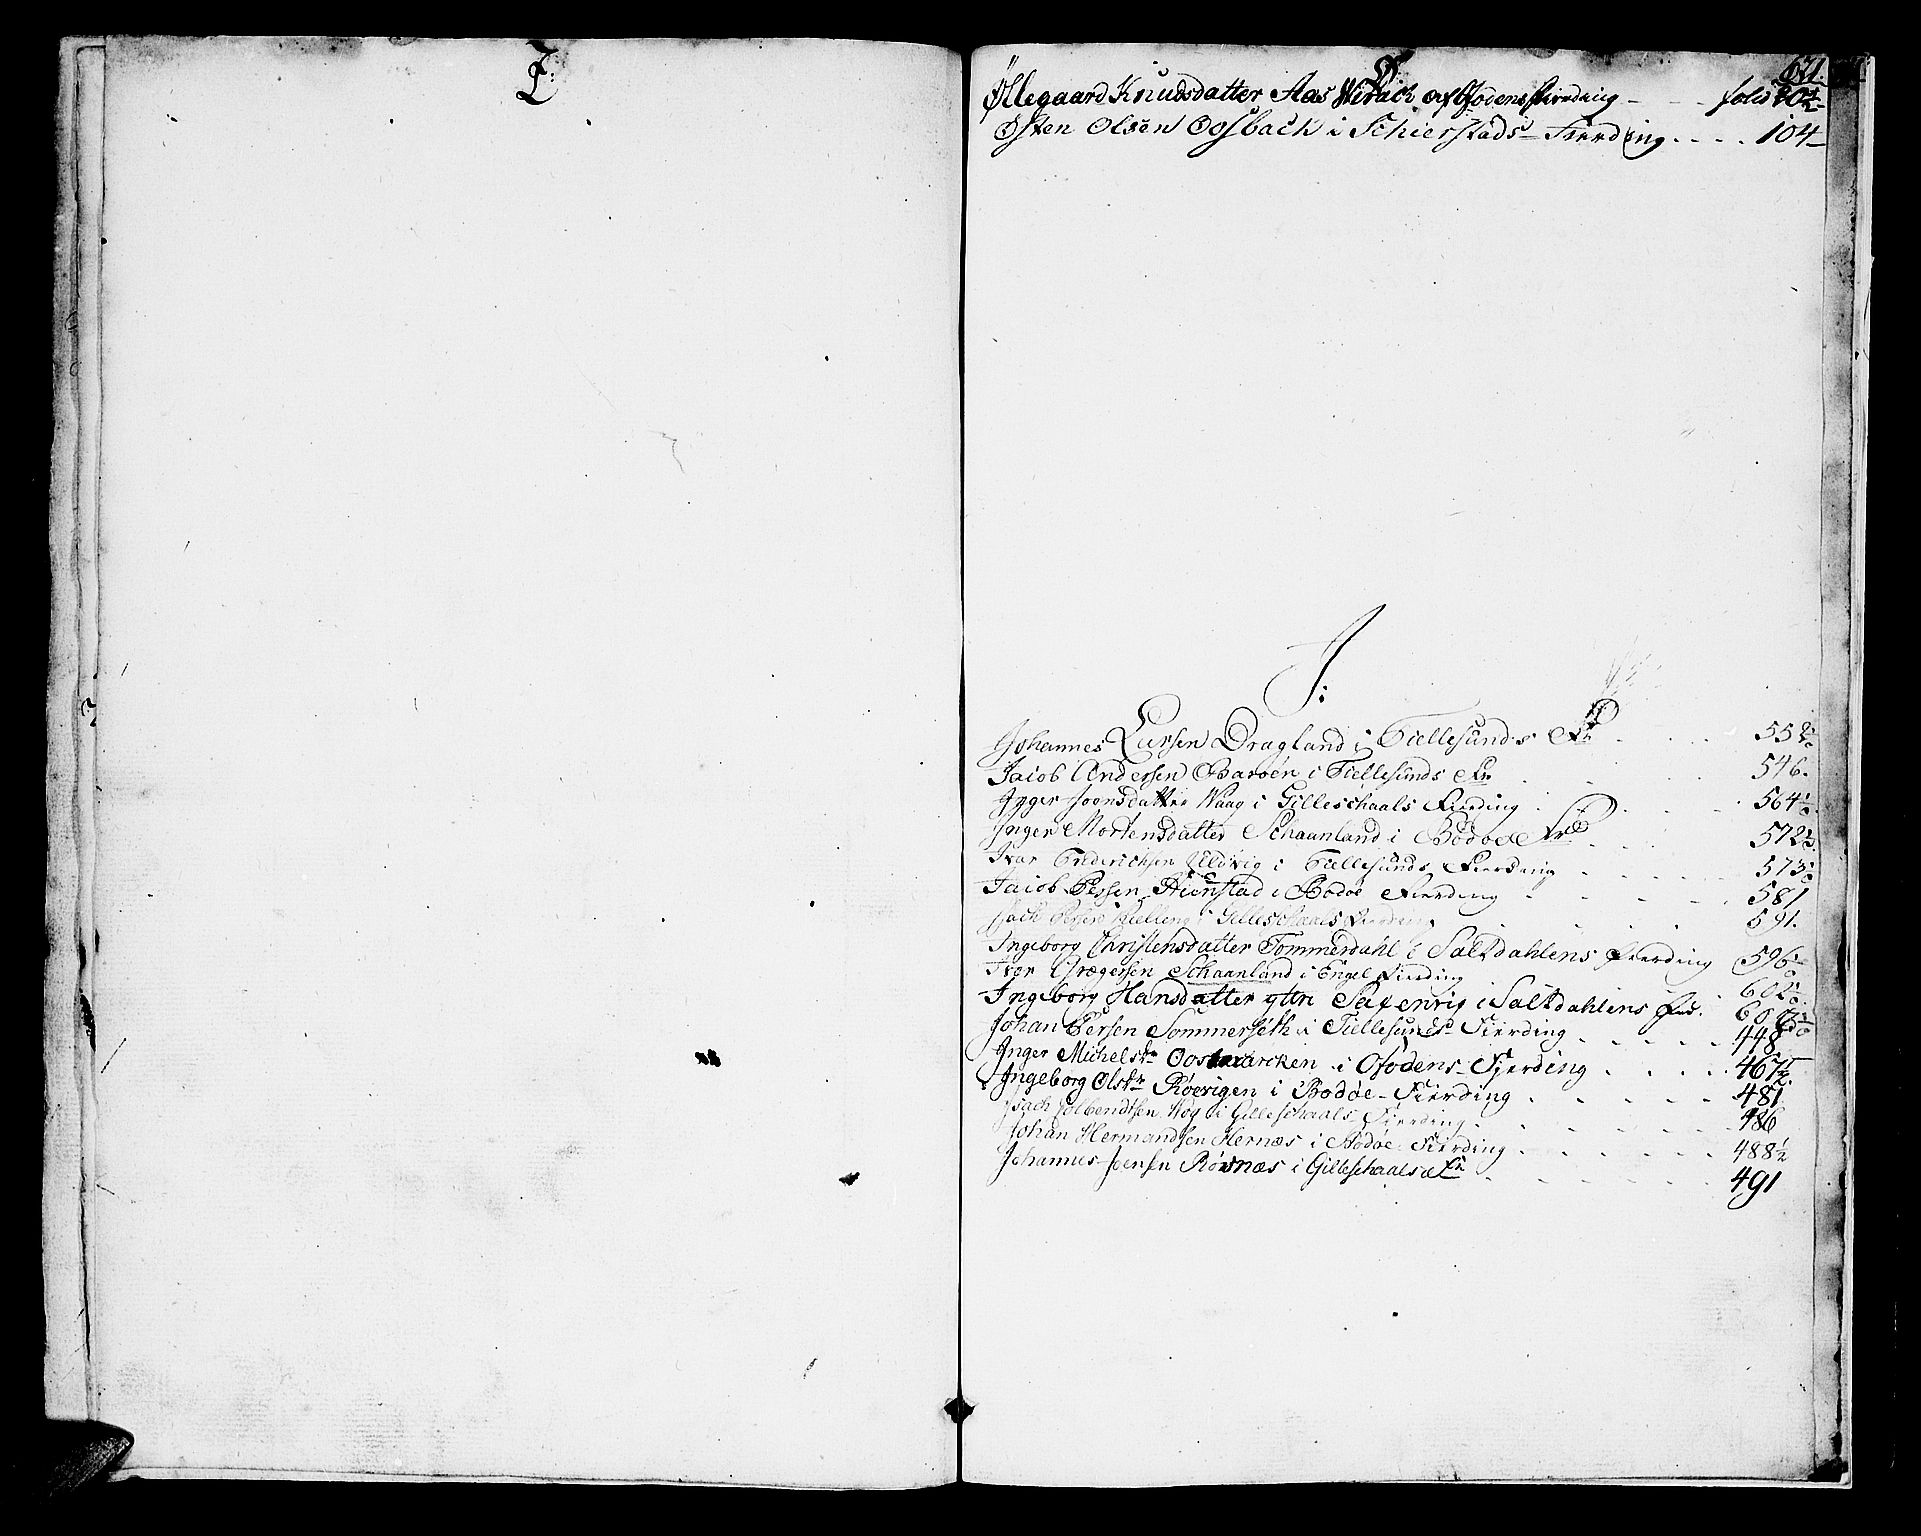 Æ:
Ø:
621.
Øllegaard Knudsdatter Aas Wirach af Ofodens Fierding - - - folio 20½
Østen Olsen Oosbach i Schierstads Fierding . . . . 104
J:
Johannes Larsen Dragland i Tiellesunds Frd . . . . 558½
Jacob Andersen Barøen i Tiellesunds Fr . . . 546.
Joensdatter Waag i Gilleschaals Fierding . . . 564½
Inger Mortensdatter Schaanland i Bodøe Frd . . . 572½
Ivar Frederichsen i Tiellesunds Fierding . . . 573½
Jacob Persen Hiemstad i Bodøe Fierding . . . 581
i Gilleschaals Fierding . . . 591.
Ingeborg Christensdatter Tommerdahl i Saltdahlens Fierding 596½
Iver Gregersen Schaanland i Engel Fierding 602½
Ingeborg Hansdatter yttre i Saltdahlens Frd. 607½
Johan Persen Sommerseth i Tiellesunds Fierding . . . . . 448
Inger Michelsdr i Ofodens Fierding . . . . 467½
Ingeborg Olsdr Røevigen i Bodøe Fierding . . . . . 481
Isach Colbendtsen i Gilleschaals Fierding . . . . . 486
Johan Hermandsen Hernæs i Bodøe Fierding . . . . . 488½
Johannes Joensen Røsnæs i Gilleschaals Fr . . . . . 491